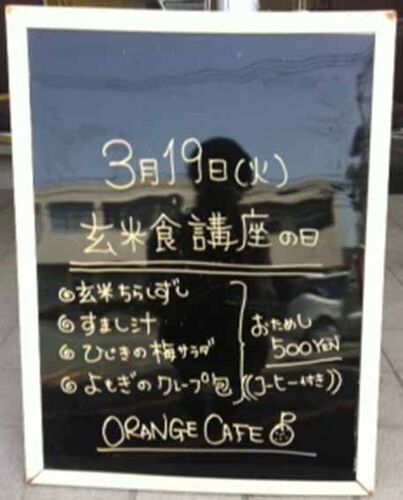 3月19日(火)
玄米食講座の日
玄米ちらしずし
すまし汁
ひじきの梅サラダ
よもぎのクレープ包
おためし
500YEN
((コーヒー付き))
ORANGE CAFE